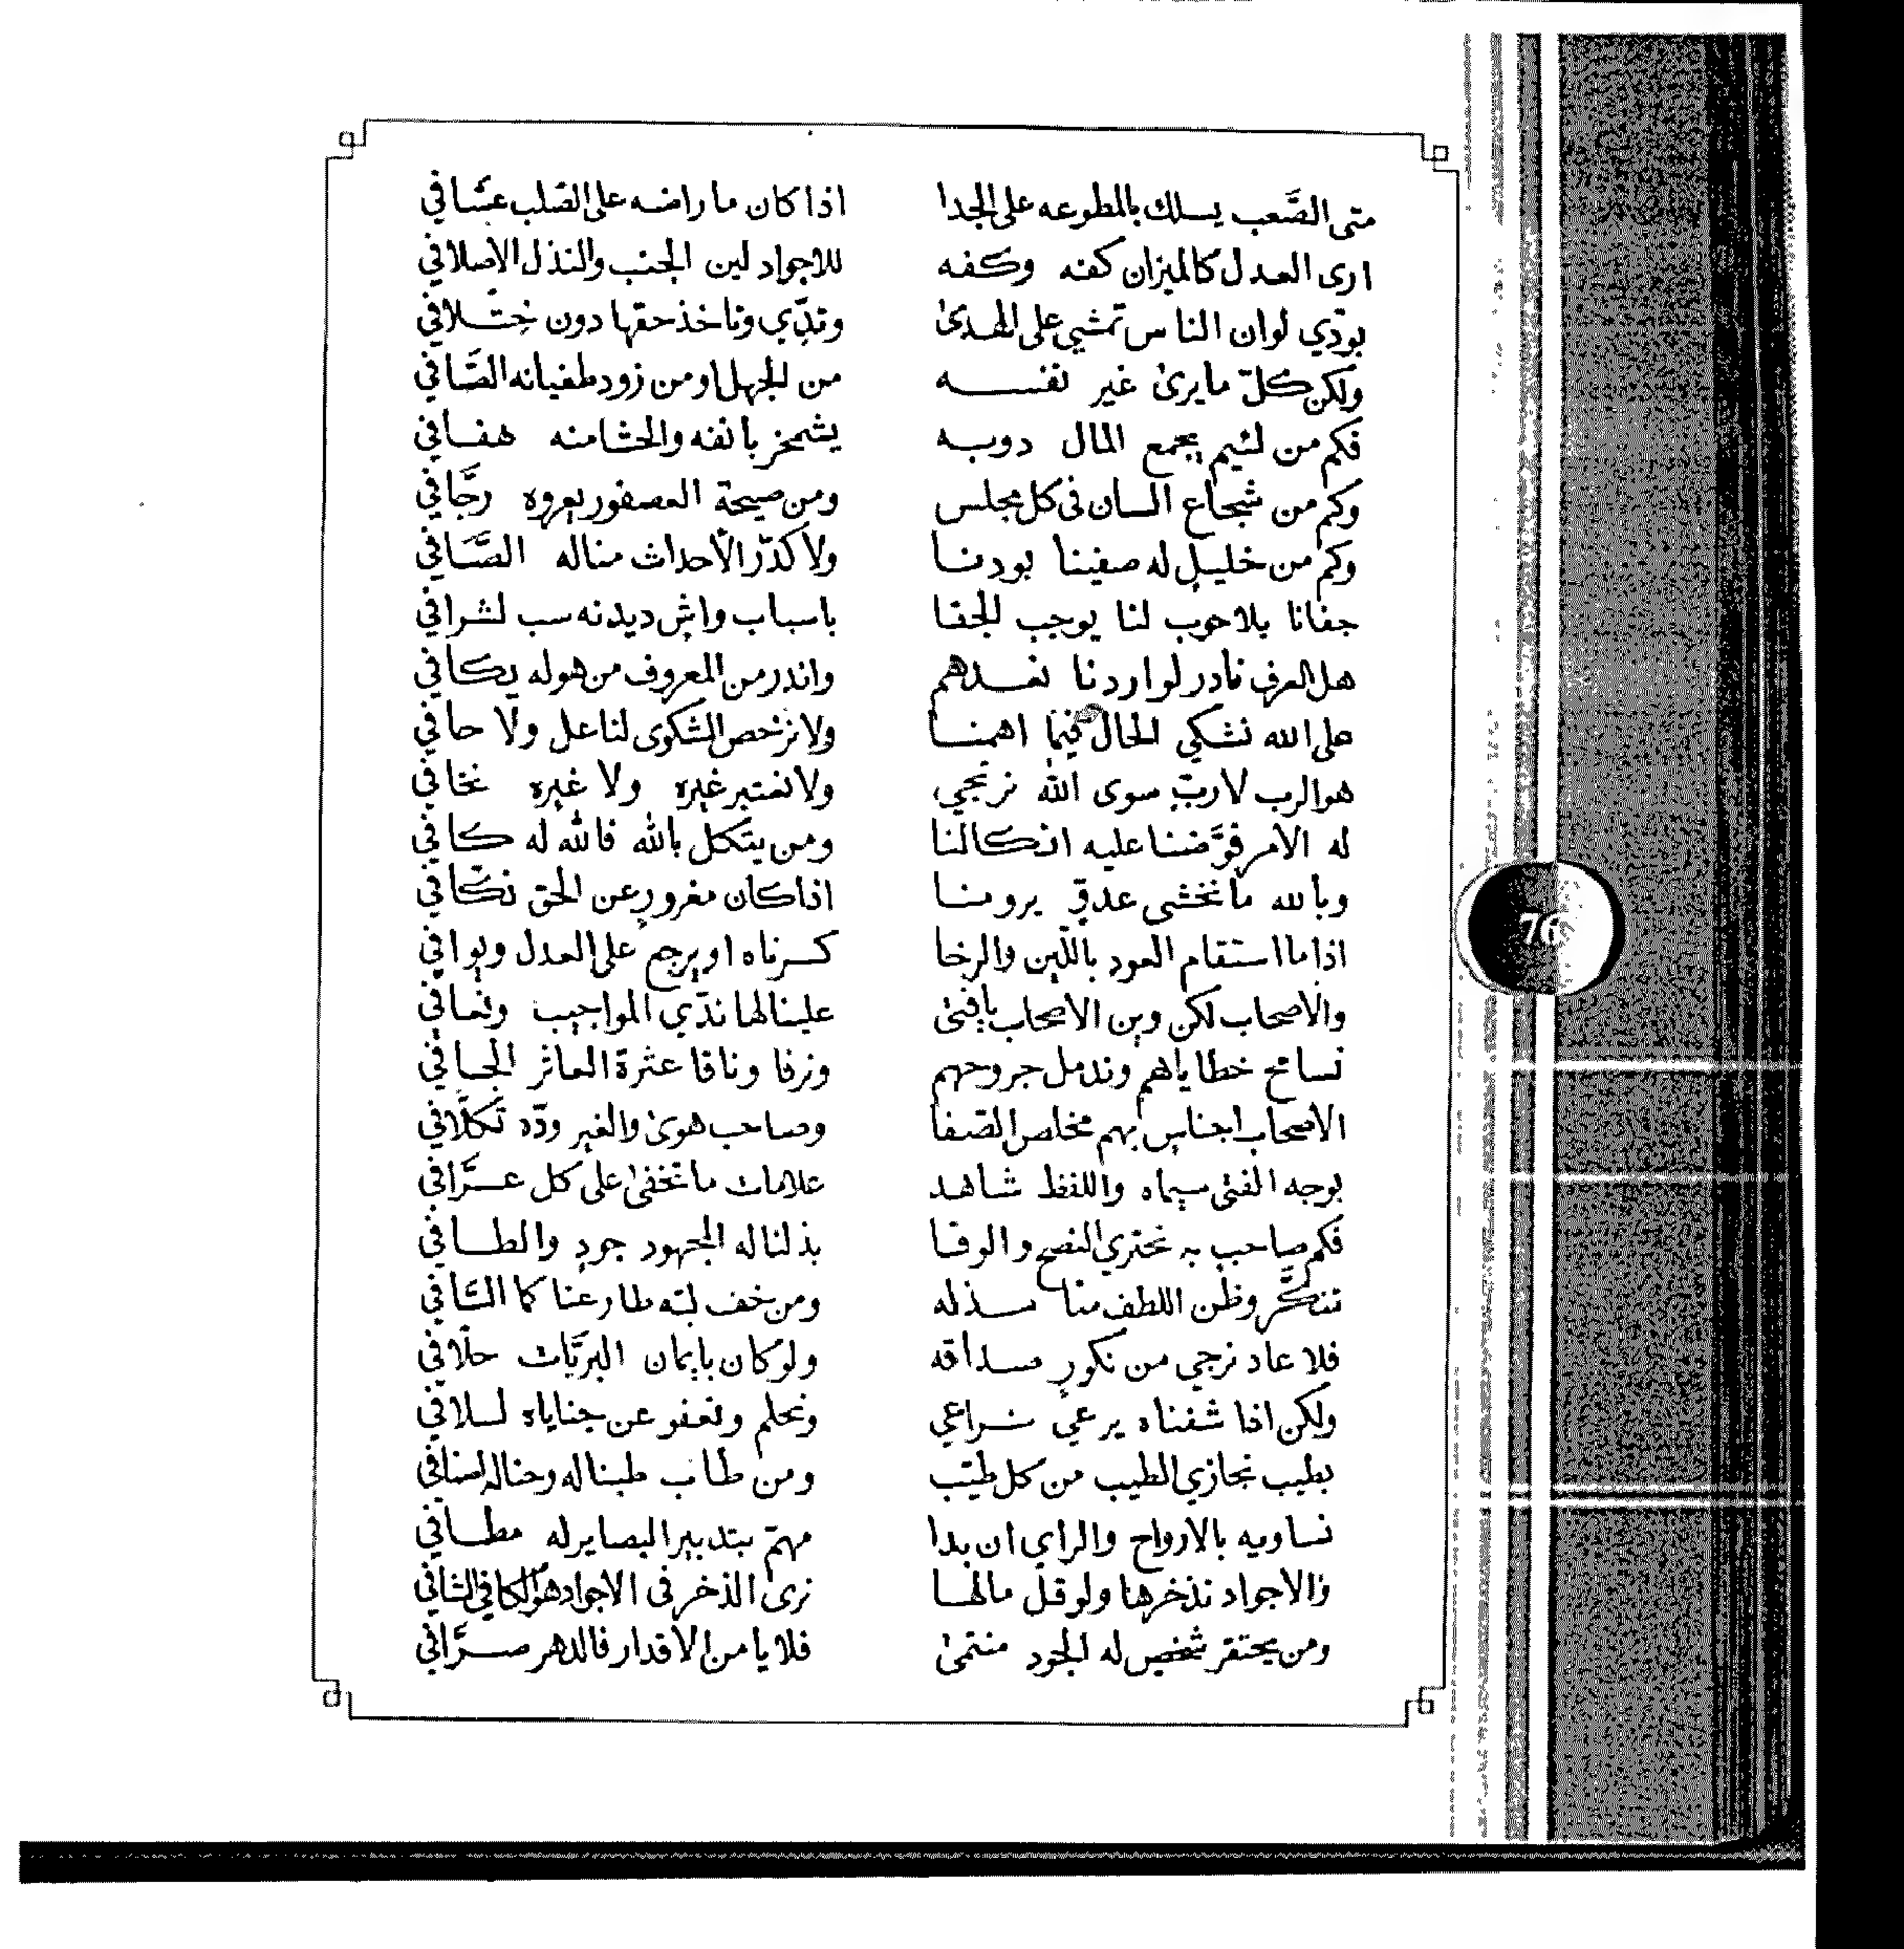 متى الصَّعب يسلك بالمطوعه على الجدا اذا كان ما راضه على الصّلب عسّافي
ارى العدل كالميزان كفه وكفه للاجواد لين الجنب والنذل الأصلافي
بودّي لو ان الناس تمشي على الهدىٰ وتدّي وتاخذ حقها دون خِتّلافي
ولكن كلّ ما يرىٰ غير نفسه من الجهل او من زود طغيانه الضَّافي
فكم من لئيم يجمع المال دوبه يشمخر بانفه والحشا منه هفافي
وكم من شجاع السان فى كل مجلس ومن صيحة العصفور يعروه رجَّافي
وكم من خليلٍ له صفينا بودنا ولا كدّر الأحداث مناله الصَّافي
جفانا بلا حوب لنا يوجب الجفا باسباب واشٍ ديدنه سب لشرافي
هل العرف نادر لو اردنا نعدهم واندر من المعروف من هو له يكافي
على الله نشكي الحال فيما اهمنا ولا نرخص الشكوى لنا عل ولا حافي
هو الرب لا ربٍّ سوى الله نرتجي ولا نعتبر غيره ولا غيره نخافي
له الامر فوَّضنا عليه اتكالنا ومن يتكل بالله فالله له كافي
وبالله ما نخشى عدوٍّ يرومنا اذا كان مغرورٍ عن الحق نكّافي
اذا ما استقام العود باللّين والرخا كسرناه او يرجع على العدل ويوافي
والاصحاب لكن وين الاصحاب يا فتىٰ علينا لها ندّي المواجيب ونعافي
نسامح خطاياهم وندمل جروحهم ونرفا وناقا عثرة العاثر الجافي
الاصحاب اجناسٍ بهم مخلص الصّفا وصاحب هوىٰ والغير ودّه تكلّافي
بوجه الفتى سيماه واللفظ شاهد علامات ما تخفىٰ على كل عرَّافي
فكم صاحبٍ به نحتري النصح والوفا بذلنا له المجهود جودٍ والطافي
تنكّر وظن اللطف منا مذله ومن خف لبّه طار عنا كما السَّافي
فلا عاد نرجي من نكورٍ صداقه ولو كان بايمان البريّات حلّافي
ولكن اذا شفناه يرعي نراعي ونحلم ونعفو عن جناياه لسلافي
بطيب نجازي الطيب من كل طيّب ومن طاب طبنا له وحنا له انصافي
نساويه بالارواح والراي ان بدا مهمّ بتدبير البصاير له مطافي
والاجواد نذخرها ولو قلّ مالها نرى الذخر فى الاجواد هو الكافي الشافي
ومن يحتقر شخصٍ له الجود منتمىٰ فلا يامن الاقدار فالدهر صرَّافي
76